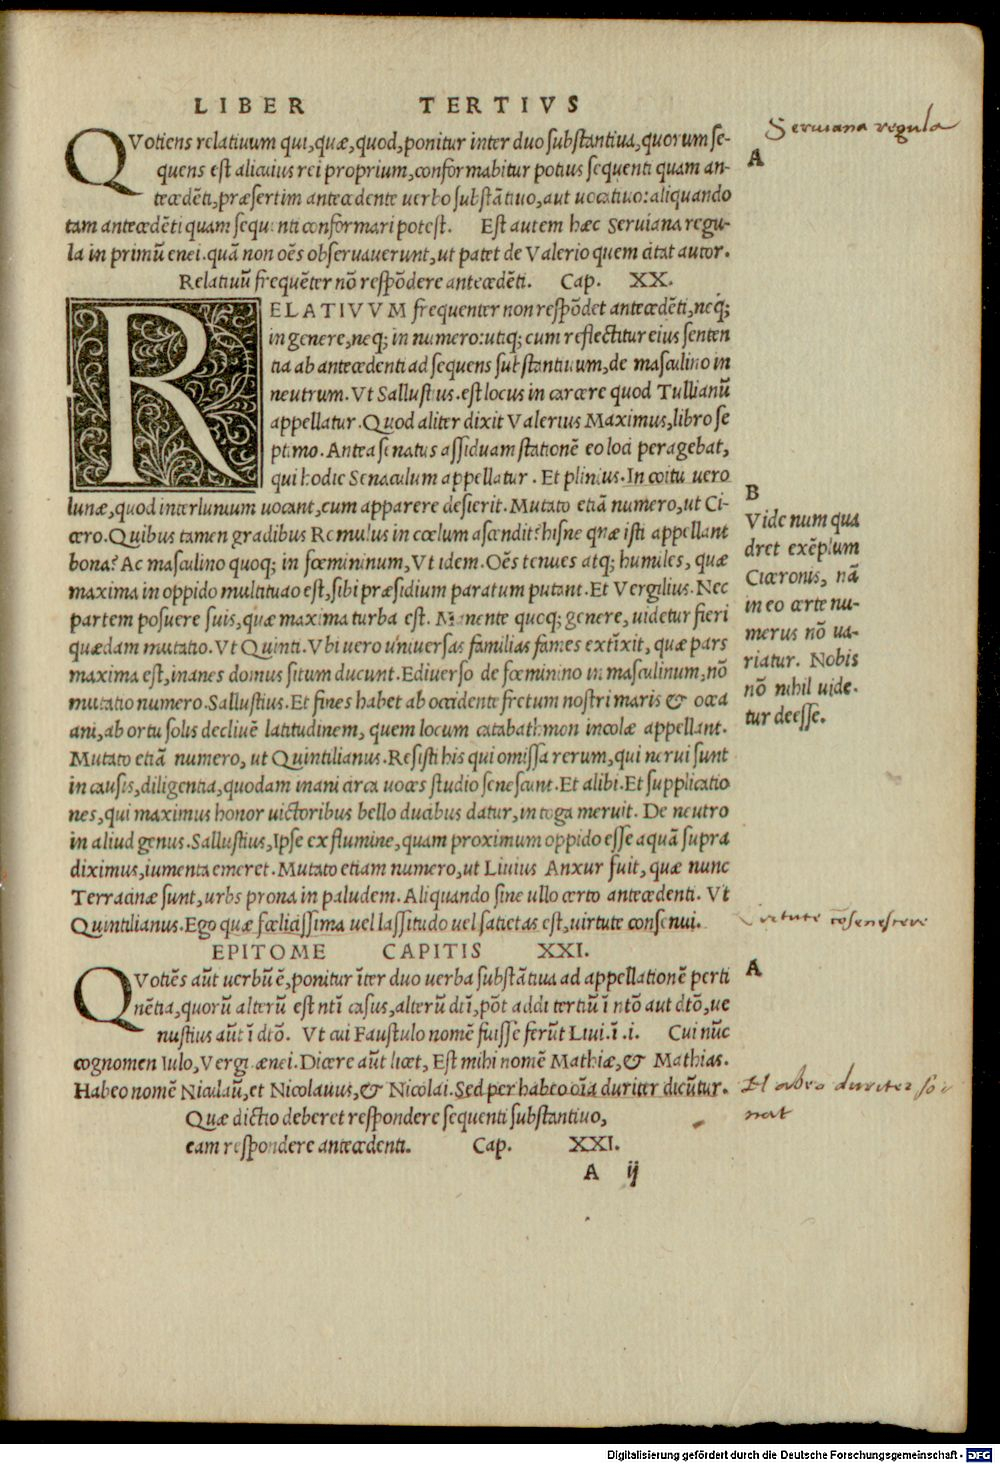 LIBER TERTIVS
QVotiens relatiuum qui, quæ, quod, ponitur inter duo substantiua, quorum se-
quens est alicuius rei proprium, conformabitur potius sequenti quam an-
tecedēti, præsertim antecedente uerbo substātiuo, aut uocatiuo: aliquando
tam antecedēti quam sequenti conformari potest. Est autem hæc Seruiana regu-
la in primū enei. quā non oēs obseruauerunt, ut patet de Valerio quem citat autor.
Relatiuū frequēter nō respōdere antecedēti. Cap. XX.
RELATIVVM frequenter non respōdet antecedēti, neq;
in genere, neq; in numero: utiq; cum reflectitur eius senten
tia ab antecedenti ad sequens substantiuum, de masculino in
neutrum. Vt Sallustius. est locus in carcere quod Tullianū
appellatur. Quod aliter dixit Valerius Maximus, libro se
ptimo. Antea senatus assiduam stationē eo loci peragebat,
qui hodie Senaculum appellatur. Et plinius. In coitu uero
lunæ, quod interlunium uocant, cum apparere desierit. Mutato etiā numero, ut Ci-
cero. Quibus tamen gradibus Romulus in cœlum ascendit? hisne quæ isti appellant
bona? Ac masculino quoq; in fœmininum, Vt idem. Oēs tenues atq; humiles, quæ
maxima in oppido multitudo est, sibi præsidium paratum putant. Et Vergilius. Nec
partem posuere suis, quæ maxima turba est. Manente quoq; genere, uidetur fieri
quædam mutatio. Vt Quinti. Vbi uero uniuersas familias fames extīxit, quæ pars
maxima est, inanes domus situm ducunt. Ediuerso de fœminino in masculinum, nō
mutatio numero. Sallustius. Et fines habet ab occidente fretum nostri maris & ocea
ani, ab ortu solis decliuē latitudinem, quem locum catabathmon incolæ appellant.
Mutato etiā numero, ut Quintilianus. Resisti his qui omissa rerum, qui nerui sunt
in causis, diligentia, quodam inani circa uoces studio senescunt. Et alibi. Et supplicatio
nes, qui maximus honor uictoribus bello ducibus datur, in toga meruit. De neutro
in aliud genus. Sallustius, Ipse ex flumine, quam proximum oppido esse aquā supra
diximus, iumenta emeret. Mutato etiam numero, ut Liuius Anxur fuit, quæ nunc
Terracinæ sunt, urbs prona in paludem. Aliquando sine ullo certo antecedenti. Vt
Quintilianus. Ego quæ fœlicissima uel lassitudo uel satietas est, uirtute consenui.
EPITOME CAPITIS XXI.
QVotiēs aūt uerbū ē, ponitur īter duo uerba substātiua ad appellationē perti
nētia, quorū alterū est ntī casus, alterū dtī, pōt addi tertiū ī ntō aut dtō, ue
nustius aūt ī dtō. Vt cui Faustulo nomē fuisse ferūt Liui. ī .i. Cui nūc
cognomen Iulo, Vergi. ænei. Dicere aūt licet, Est mihi nomē Mathiæ, & Mathias.
Habeo nomē Nicolaū, et Nicolauus, & Nicolai. Sed per habeo oīa duriter dicūtur.
Quæ dictio deberet respondere sequenti substantiuo,
eam respondere antecedenti. Cap. XXI.
A ij
Seruiana regula
A
B
Vide num qua
dret exēplum
Ciceronis, nā
in eo certe nu-
merus nō ua-
riatur. Nobis
nō nihil uide-
tur deesse.
virtute cōsenescere
A
Habeo duriter so
nat
Digitalisierung gefördert durch die Deutsche Forschungsgemeinschaft - DFG